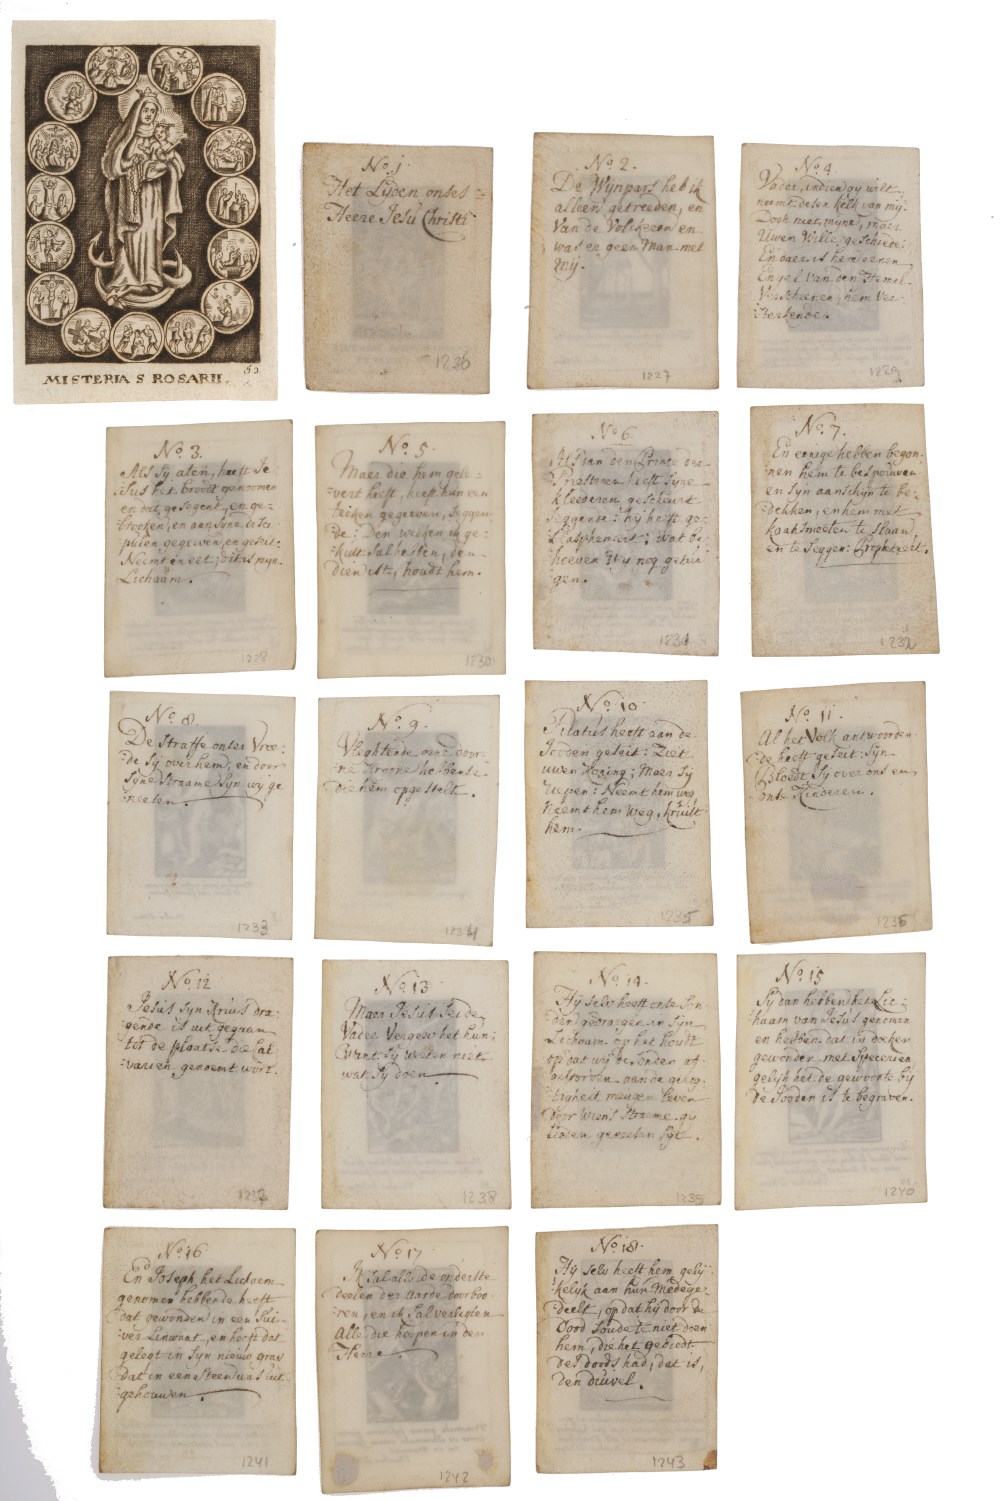 MISTERIA S ROSARII.
No. 1
Het Lijden onses
Heere Jesu Christi
1226
No. 2.
De Wynpars heb ik
alleen getreeden, en
Van de Volckeren en
was er geen Man met
Mij.
1227
No. 4
Vader, indien gy wilt
neemt desen kelk van my.
Doch niet myne, maer
Uwen Wille geschiede:
En daer is hem eenen
Engel van den Hemel
Verscheenen, hem Ver-
sterkende.
1229
No. 3.
Als sy aten, heeft Je-
sus het broodt genomen
en dat gesegent, en ge-
broken, en aen syne Disci-
pulen gegeven, en geseit:
Neemt en eet; dit is myn
Lichaam.
1228
No. 5.
Maer die hem gele-
vert heeft, heeft hun een
teiken gegeven, seggen-
de: Den welken ik ge-
kust sal hebben, den
dien ist, houdt hem.
1230
No. 6.
den Prince der
Priesteren heeft syne
kleederen gescheurt
seggende: hy heeft ge-
blasphemeert; wat be-
hoeven wy nog getui-
gen.
1231
No. 7.
En eenige hebben begon-
nen hem te bespouwen
en syn aanschyn te be-
dekken, en hem met
kaaksmeeten te slaan,
en te seggen: Propheteert.
1232
No. 8.
De straffe onser Vree-
de sy over hem, en door
syne straeme syn wy ge-
neesen.
1233
No. 9.
Vlightende eene door-
ne kroone hebbense
die hem opgestelt.
1234
No. 10
Pilatus heeft aan de
Jooden geseit: Ziet
uwen Koning; Maer sy
riepen: Neemt hem weg
Neemt hem weg, kruist
hem.
1235
No. 11.
Al het Volk antwoorden-
de heeft geseit: syn
Bloedt sy over ons en
onse Kinderen.
1236
No. 12
Jesus syn Kruis dra-
gende is uit gegaan
tot de plaatse die Cal-
varien genoemt wort.
1237
No. 13
Maer Jesus seide
Vader Vergeeft het hun;
Want sy weten niet
wat sy doen
1238
No. 14
Hy selve heeft onse son-
den gedraegen in syn
Lichaam op het houdt
op dat wy de sonden af-
gestorven aan de gereg-
tigheit meugen leven
door wiens straeme gy
lieden genesen syt.
1239
No. 15
Sy dan hebben het Lic-
haam van Jesus genomen
en hebben dat in doeken
gewonden met Speceryen
gelyk het de gewoonte bij
de Jooden is te begraven.
1240
No. 16
En Joseph het Lichaem
genomen hebbende heeft
dat gewonden in een Sui-
ver Linwaat, en heeft dat
gelegt in syn nieuw graf
dat in een steen was uit
gehouwen.
1241
No. 17
Ik sal alle de onderste
deelen der aarde doorboo-
ren, en ik sal verligten
alle die hoopen in den
Heere
1242
No. 18.
Hy selve heeft hem gely-
kelyk aan hun Medege-
deelt, op dat hy door de
Dood soude te niet doen
hem, die het gebiedt
des Doods had; dat is,
den duivel.
1243